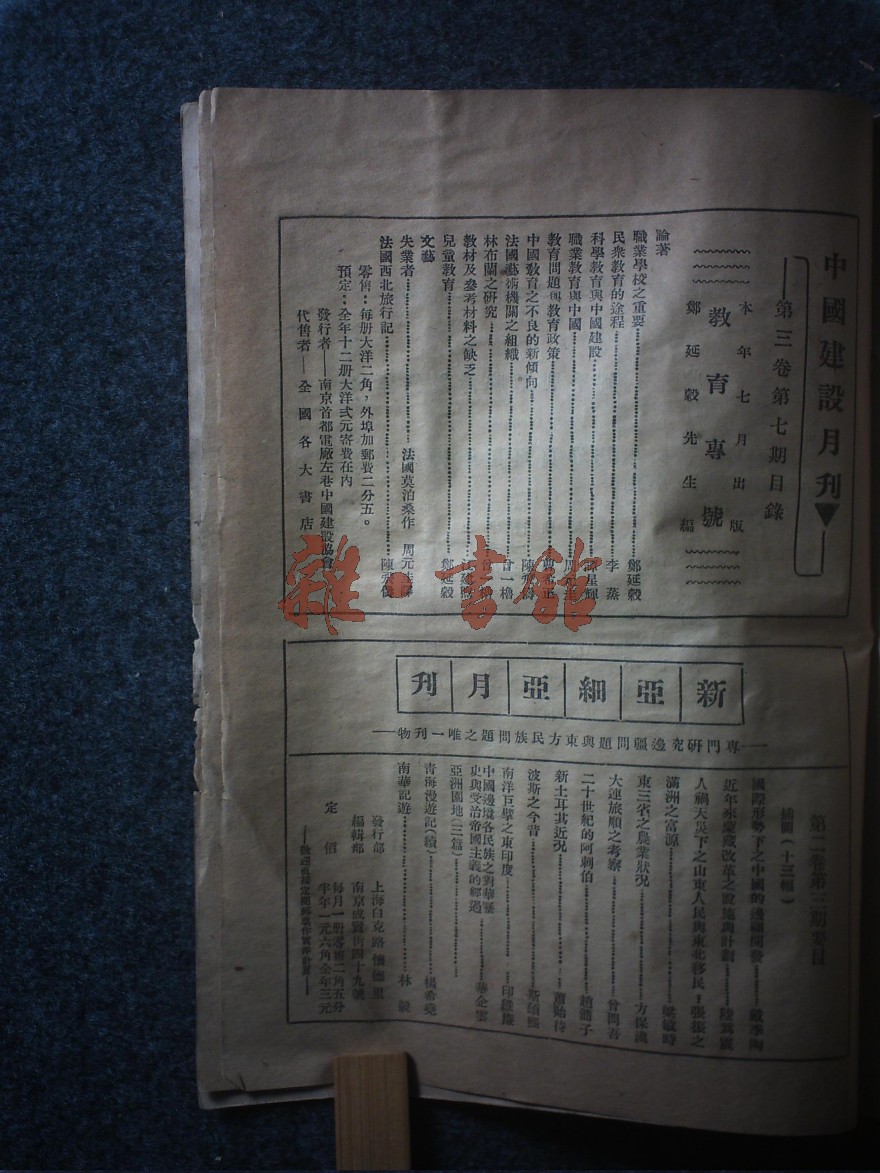 中國建設月刊
——第三卷第七期目錄
本年七月出版
教育專號
鄭延穀先生編
論著
職業學校之重要 鄭延穀
民衆教育的途程 李蒸
科學教育與中國建設 星輝
職業教育與中國 周
教育問題與教育政策
中國教育之不良的新傾向 陳
法國藝術機關之組織 曾一櫓
林布蘭之研究 曾一櫓
教材及參考材料之缺乏
兒童教育 鄭延穀
文藝
失業者 法國莫泊桑作 周元
法國西北旅行記 陳
零售：每册大洋二角，外埠加郵費二分五。
預定：全年十二册大洋弍元寄費在内
發行者——南京首都電廠左巷中國建設協會
代售者——全國各大書店
雜·書館
新亞細亞月刊
——專門研究邊疆問題與東方民族問題之唯一刊物——
第二卷第三期要目
插圖（十三幅）
國際形勢下之中國的邊疆開發 戴季陶
近年來蒙藏改革之設施與計劃 陸爲震
人禍天災下之山東人民與東北移民 張振之
滿洲之富源 梁敏時
東三省之農業狀況 方保漢
大連旅順之考察 曾問吾
二十世紀的阿剌伯 趙簡子
新土耳其近況 蕭
波斯之今昔 斯頌熙
南洋巨擘之東印度 印維廉
中國邊境各民族之對華歷史與受治帝國主義的經過 華企雲
亞洲園地（三篇）
青海漫遊記（續） 楊希堯
南華記遊 林
發行部 上海白克路懷德里
編輯部 南京成賢街四十九號
定價 每月一册零售二角五分
半年一元六角全年三元